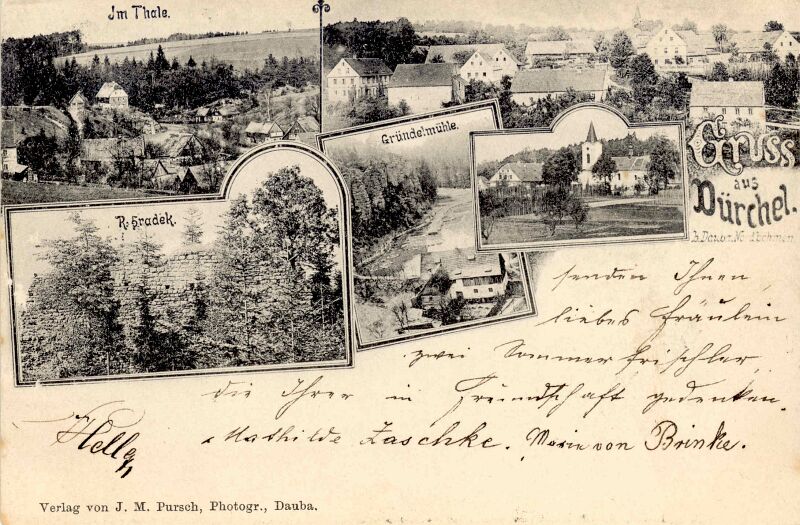 Im Thale.
Gründelmühle.
R. Hradek.
Gruss
aus
Dürchel.
b. Dauba N. Böhmen
senden Ihnen,
liebes Fräulein
zwei Sommerfrischler,
die Ihrer in Freundschaft gedenken.
Mathilde Zaschke. Marie von Brinke.
Verlag von J. M. Pursch, Photogr., Dauba.